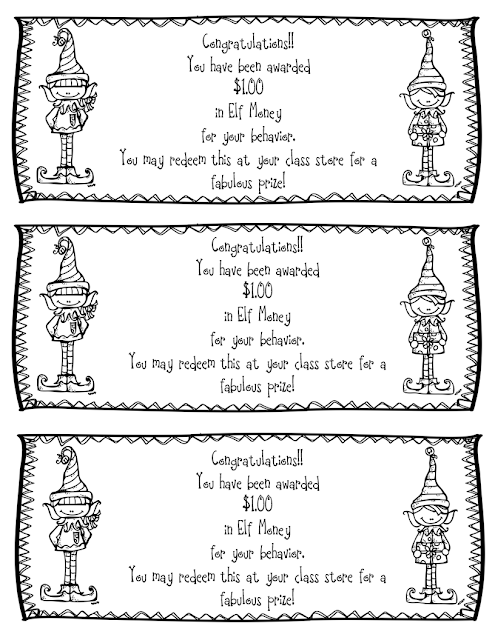 Congratulations!!
You have been awarded
$1.00
in Elf Money
for your behavior.
You may redeem this at your class store for a
fabulous prize!
Congratulations!!
You have been awarded
$1.00
in Elf Money
for your behavior.
You may redeem this at your class store for a
fabulous prize!
Congratulations!!
You have been awarded
$1.00
in Elf Money
for your behavior.
You may redeem this at your class store for a
fabulous prize!